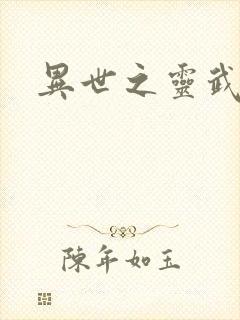 異世之靈武
陳年如玉